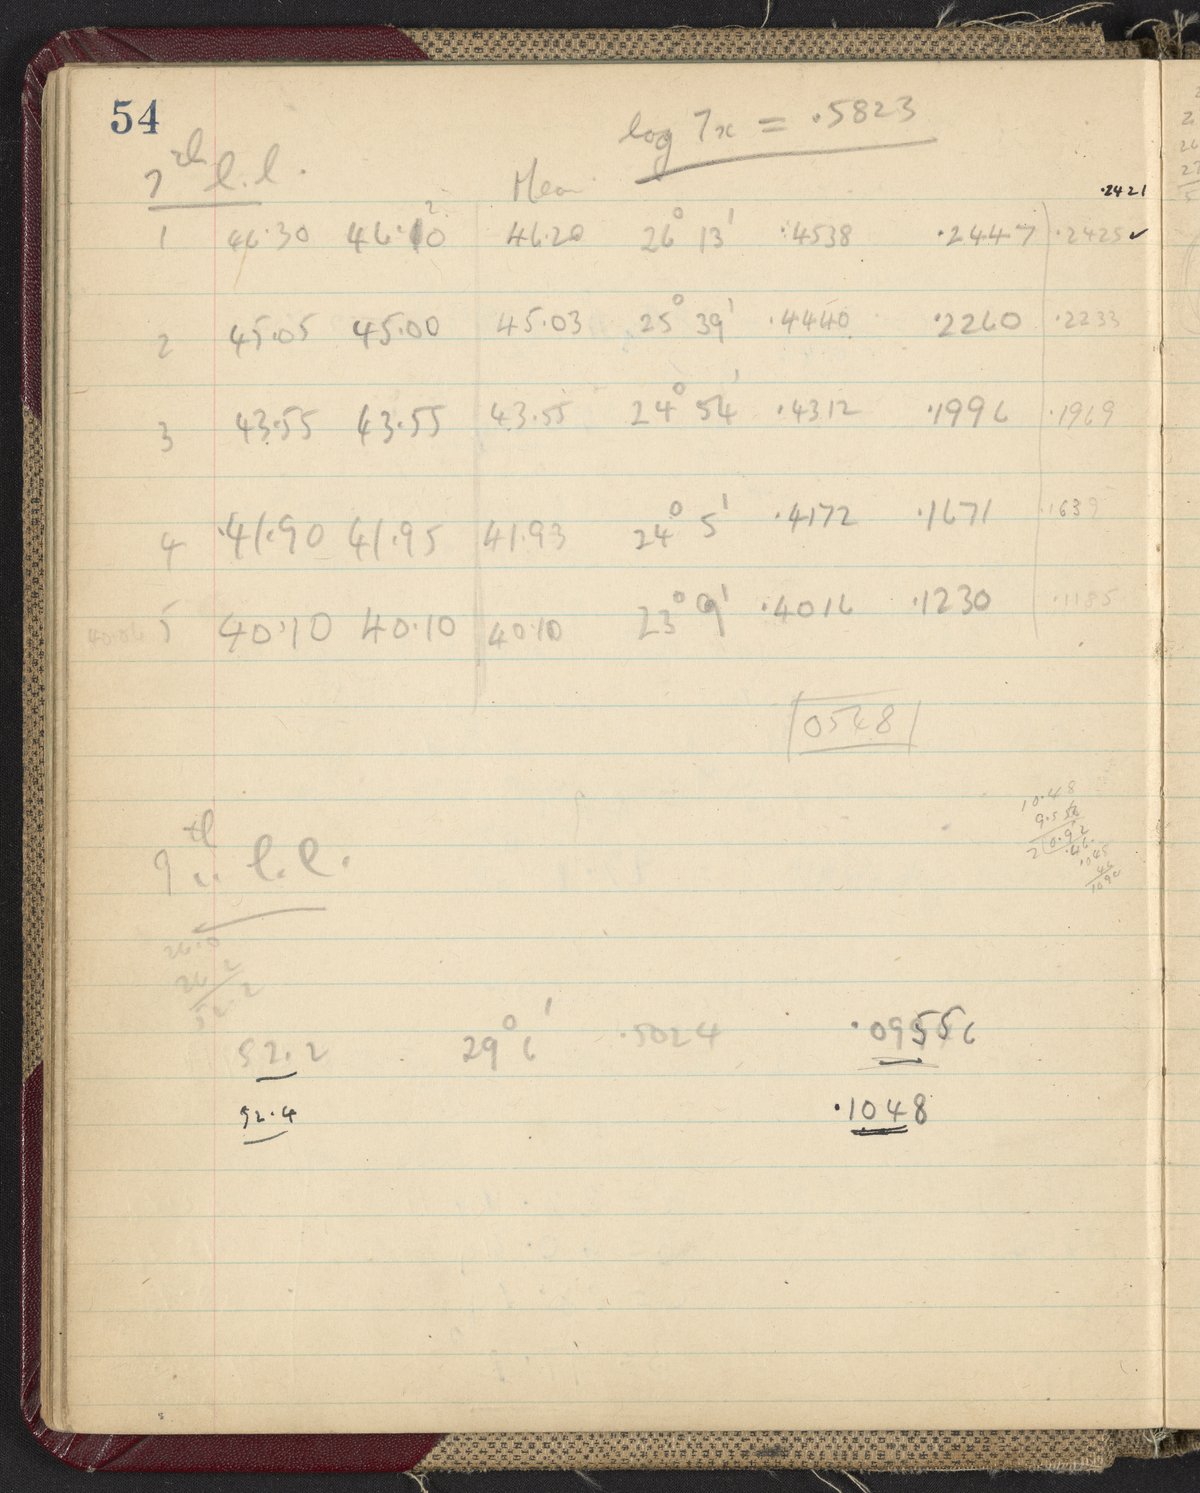 54
log 7x = .5823
7th l.l.
Mean
.2421
1 46.30 46.10 46.20 26° 13' .4538 .2447 .2425 ✓
2 45.05 45.00 45.03 25° 39' .4440 .2260 .2233
3 43.55 43.55 43.55 24° 54' .4312 .1996 .1969
4 41.90 41.95 41.93 24° 5' .4172 .1671 .1639
5 40.10 40.10 40.10 23° 9' .4016 .1230 .1185
0548
10.48
9.556
2 0.92
.46
9th l.l.
26.0
26 2
52.2
52.2 29° 6' .5024 .09556
52.4 .1048